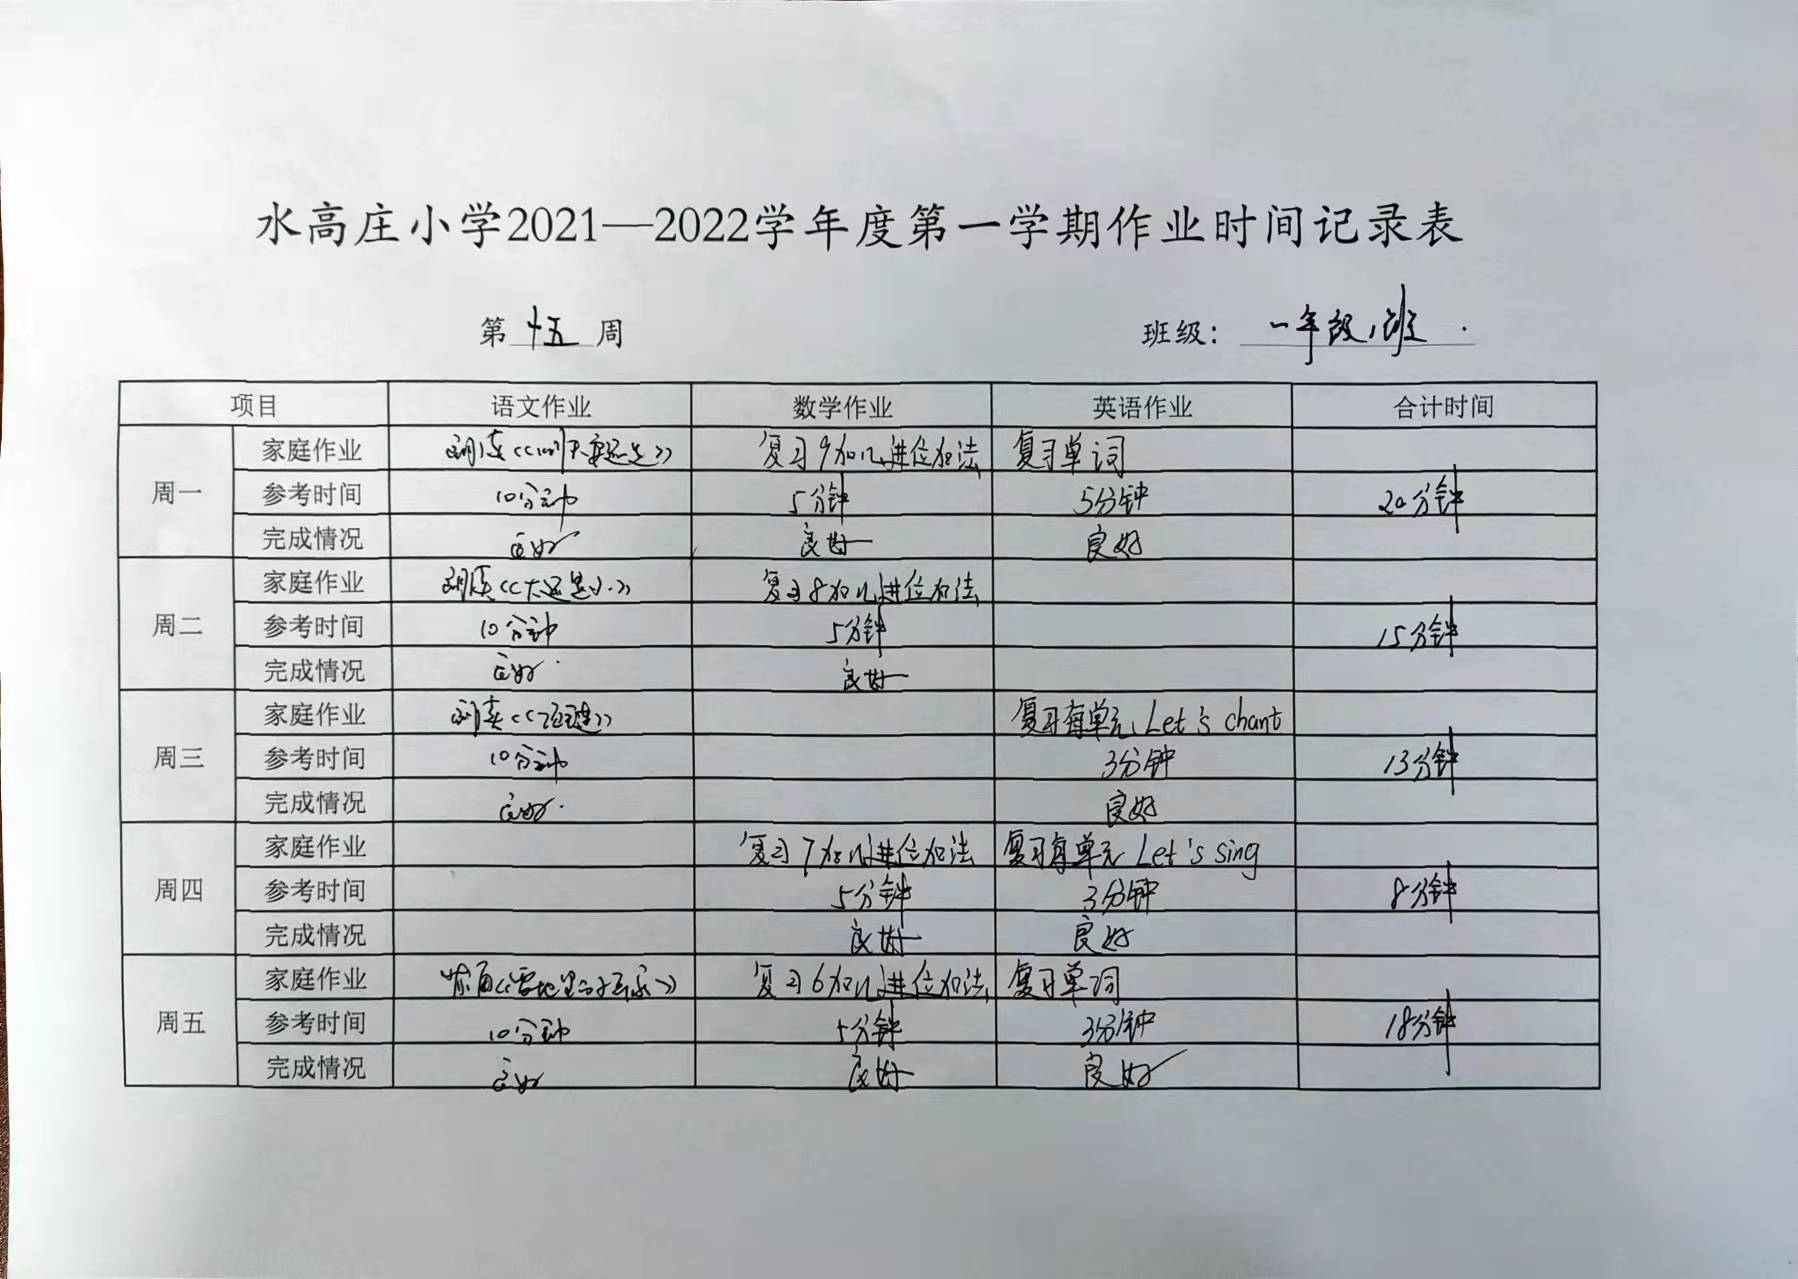 水高庄小学2021—2022学年度第一学期作业时间记录表
第 十五 周 班级： 一年级1班
项目 语文作业 数学作业 英语作业 合计时间
周一
家庭作业 朗读 复习9加几进位加法 复习单词
参考时间 10分钟 5分钟 5分钟 20分钟
完成情况 良好 良好 良好
周二
家庭作业 朗读《大还是小》 复习8加几进位加法
参考时间 10分钟 5分钟 15分钟
完成情况 良好 良好
周三
家庭作业 朗读 复习每单元 Let's chant
参考时间 10分钟 3分钟 13分钟
完成情况 良好 良好
周四
家庭作业 复习7加几进位加法 复习每单元 Let's sing
参考时间 5分钟 3分钟 8分钟
完成情况 良好 良好
周五
家庭作业 《雪地里的小画家》 复习6加几进位加法 复习单词
参考时间 10分钟 5分钟 3分钟 18分钟
完成情况 良好 良好 良好